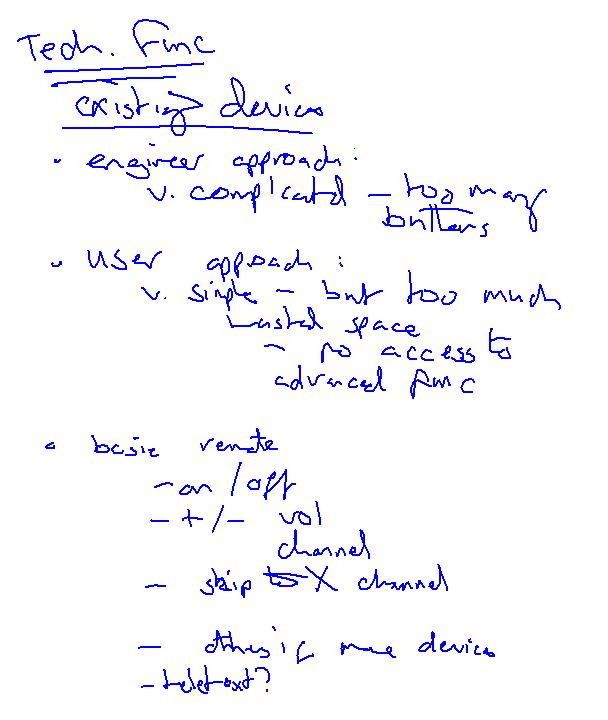 Tech. Func
existing devices
• engineer approach:
v. complicatd - too many
buttons
• user appoach:
v. simple - but too much
wasted space
- no access to
advanced func
• basic remote
- on / off
- + / - vol
channel
- skip to X channel
- others if more devices
- teletext?